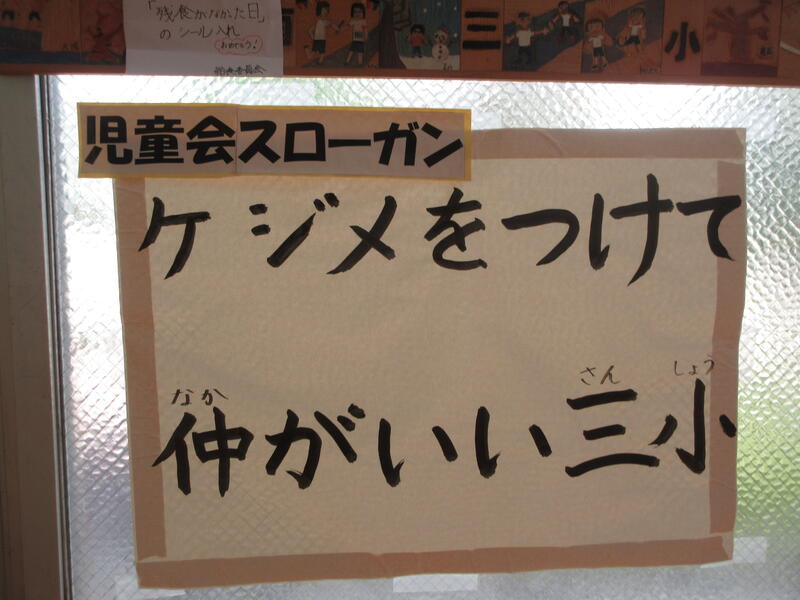 「残食がなかった日」
のシール入れ
おめでとう!
三
小
児童会スローガン
ケジメをつけて
なか さん しょう
仲がいい三小